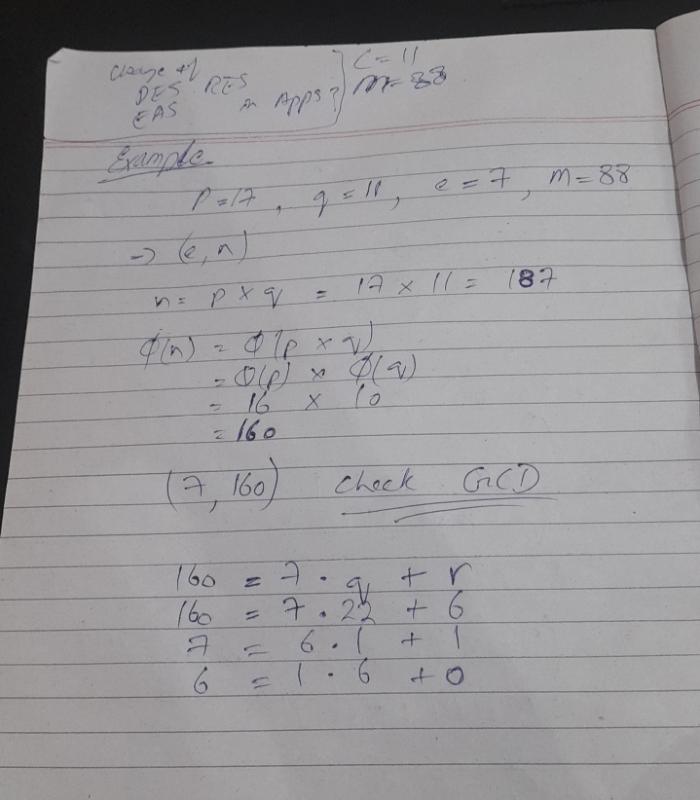 DES RES
EAS in Apps?
C = 11
m = 88
Example
P=17, q=11, e=7, M=88
→ (e, n)
n = p × q = 17 × 11 = 187
Φ(n) = Φ(p × q)
= Φ(p) × Φ(q)
= 16 × 10
= 160
(7, 160) Check GCD
160 = 7 · q + r
160 = 7 · 22 + 6
7 = 6 · 1 + 1
6 = 1 · 6 + 0